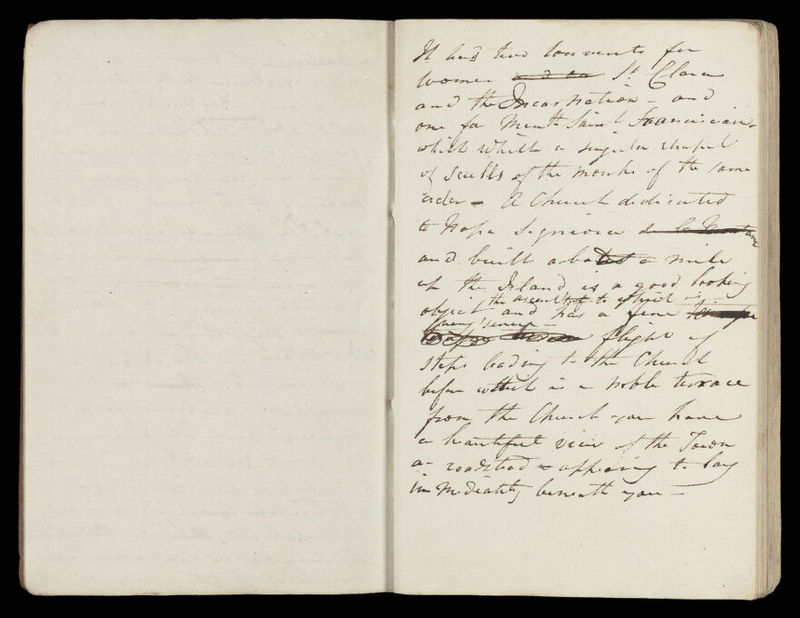 It had two Convents for
Women and an St Clara
and the Incarnation - and
one for Men the Saint Franciscian
which a singular chapel
of Sculls of the Monks of the same
order - A Church dedicated
to Nosa Signiora de la Montane
and built about a mile
the Island is a good looking
object and has a fine
the ascent to which is
flight of
steps leading to the Church
before which is a noble terrace
from the Church you have
a beautiful view of the Town
roadstead appearing to lay
immediately beneath you -